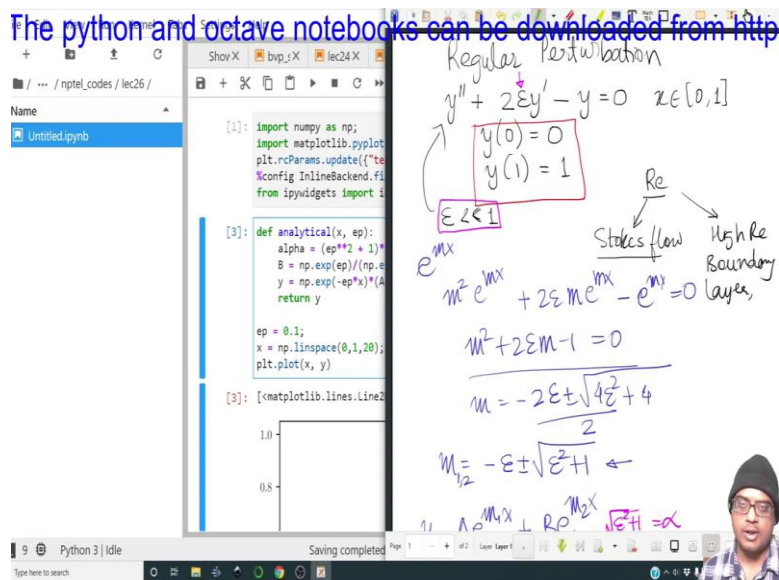 The python and octave notebooks can be downloaded from http
Show
bvp_s
lec24
/ ... / nptel_codes / lec26 /
Name
Untitled.ipynb
[1]: import numpy as np;
import matplotlib.pyplot
plt.rcParams.update({"te
%config InlineBackend.fi
from ipywidgets import i
[3]: def analytical(x, ep):
alpha = (ep**2 + 1)*
B = np.exp(ep)/(np.e
y = np.exp(-ep*x)*(A
return y
ep = 0.1;
x = np.linspace(0,1,20);
plt.plot(x, y)
[3]: [<matplotlib.lines.Line2
1.0
0.8
9 Python 3 | Idle
Saving completed
Type here to search
Regular Perturbation
y'' + 2εy' - y = 0 x∈[0,1]
y(0) = 0
y(1) = 1
ε << 1
Re
Stokes flow
High Re
Boundary
layer,
e^{mx}
m² e^{mx} + 2εm e^{mx} - e^{mx} = 0
m² + 2εm - 1 = 0
m = -2ε ± √4ε² + 4
2
m_{1,2} = -ε ± √ε² + 1 ←
Ae^{m₁x} + Be^{m₂x} √ε²+1 = α
Page 1 of 2 Layer Layer 1